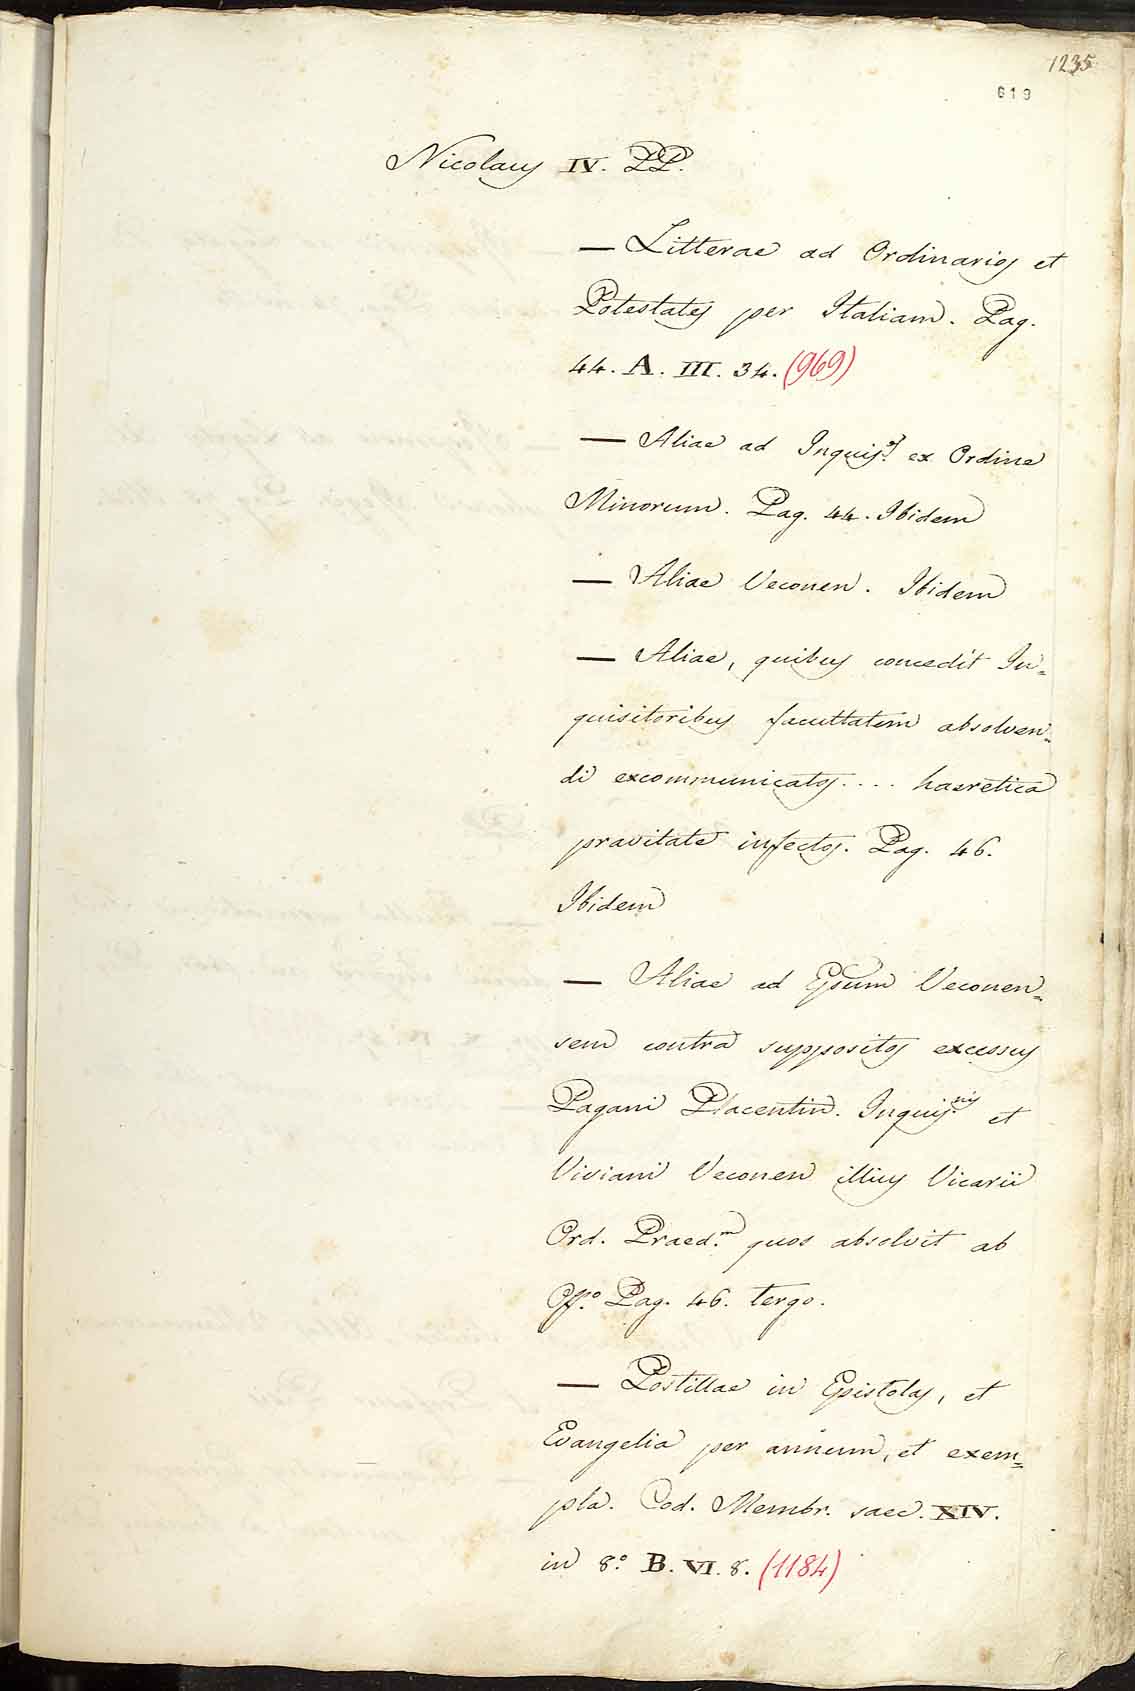 1235
619
Nicolaus IV. PP.
— Litterae ad Ordinarios et
Potestates per Italiam. Pag.
44. A. III. 34. (969)
— Aliae ad Inquis.es ex Ordine
Minorum. Pag. 44. Ibidem
— Aliae Veconen. Ibidem
— Aliae, quibus concedit In=
quisitoribus facultatem absolven=
di excommunicatos.... haeretica
pravitate infectos. Pag. 46.
Ibidem
— Aliae ad Epum Veconen=
sem contra suppositos excessus
Pagani Placentin. Inquis.ris et
Viviani Veconen illius Vicarii
Ord. Praed.m quos absolvit ab
Off.o Pag. 46. tergo.
— Postillae in Epistolas, et
Evangelia per annum, et exem=
pla. Cod. Membr. saec. XIV.
in 8.o B. VI. 8. (1184)